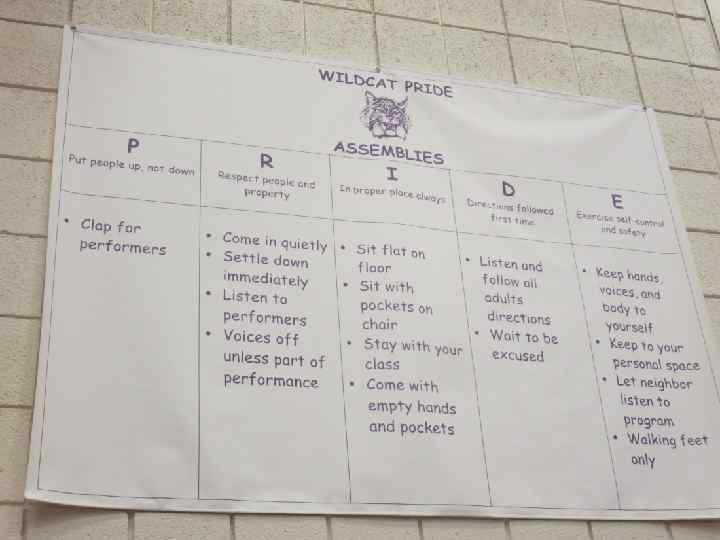 WILDCAT PRIDE
ASSEMBLIES
P
Put people up, not down
• Clap for
performers
R
Respect people and
property
• Come in quietly
• Settle down
immediately
• Listen to
performers
• Voices off
unless part of
performance
I
In proper place always
• Sit flat on
floor
• Sit with
pockets on
chair
• Stay with your
class
• Come with
empty hands
and pockets
D
Directions followed
first time
• Listen and
follow all
adults
directions
• Wait to be
excused
E
Exercise self-control
and safety
• Keep hands,
voices, and
body to
yourself
• Keep to your
personal space
• Let neighbor
listen to
program
• Walking feet
only